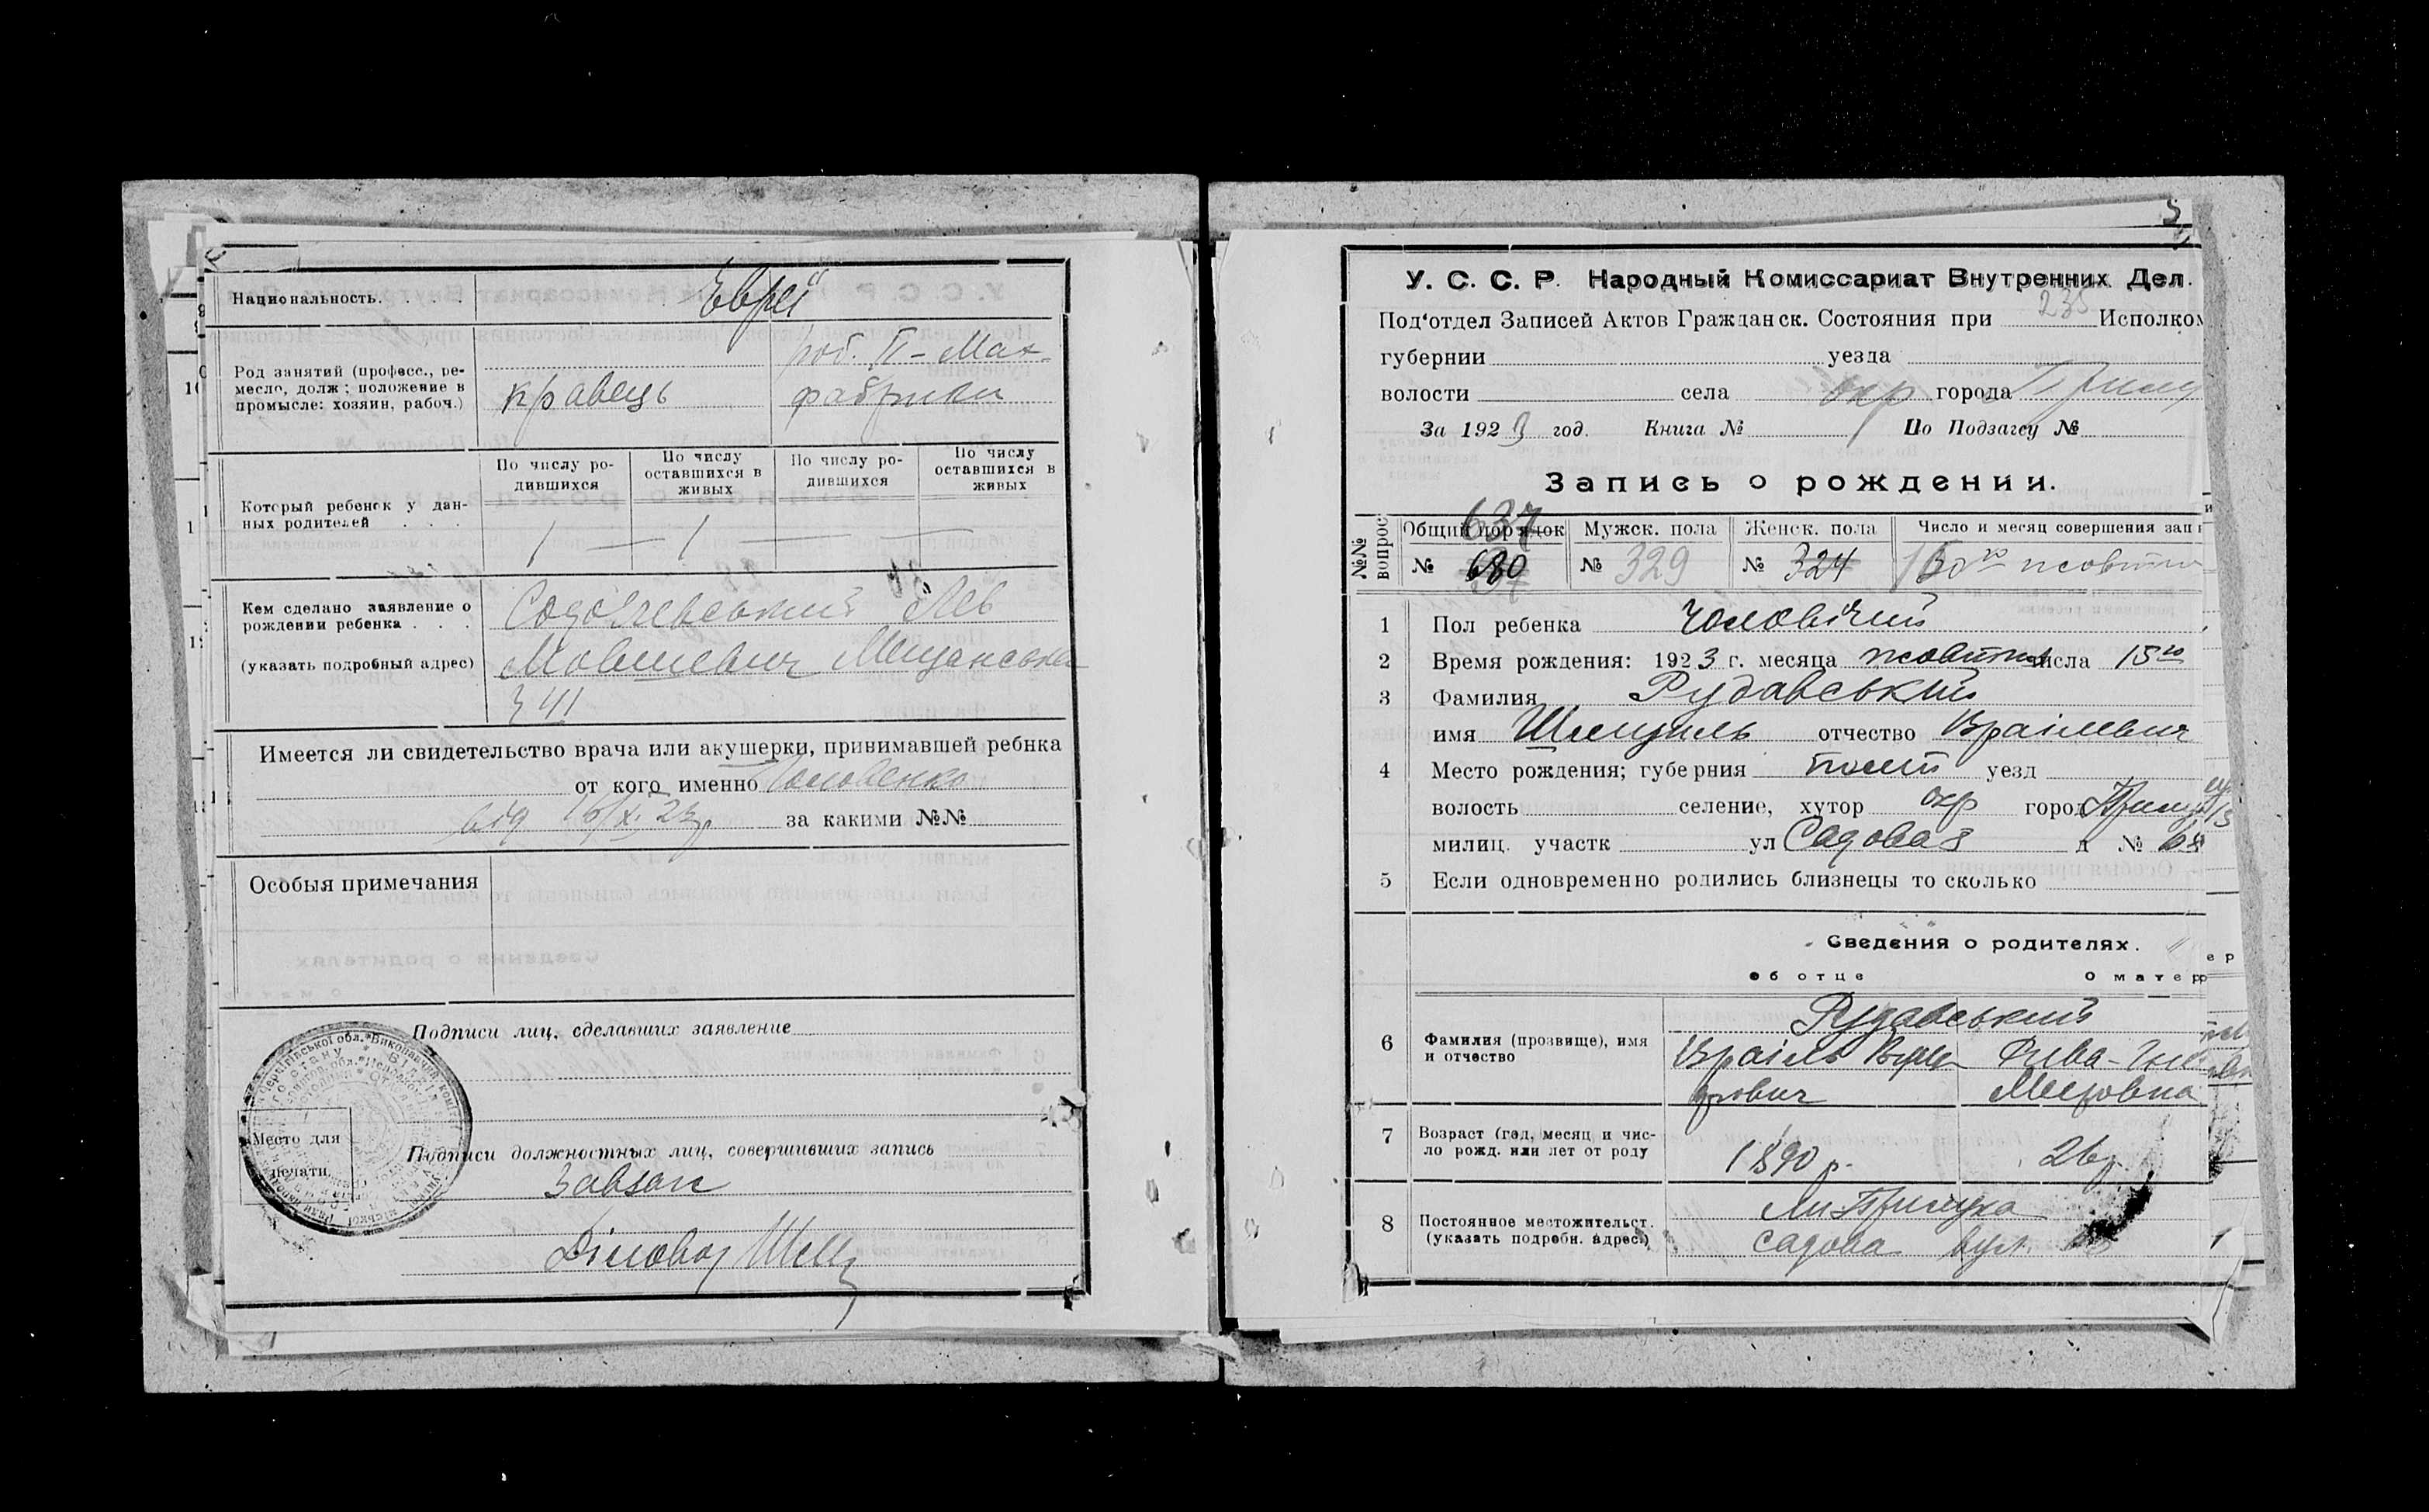 Национальность.
Евреї
Род занятий (професс., ре-
месло, долж; положение в
промысле: хозяин, рабоч.)
кравець
роб. Т- Мах.
фабрики
Который ребенок у дан-
ных родителей . . .
По числу ро-
дившихся
По числу
оставшихся в
живых
По числу ро-
дившихся
По числу
оставшихся в
живых
1 — 1 — —
Кем сделано заявление о
рождении ребенка . . .
(указать подробный адрес)
Лев
Мовшевич Мещанська
41
Имеется ли свидетельство врача или акушерки, принимавшей ребнка
от кого именно
від 16/X. 23р за какими №№
Особыя примечания
Подписи лиц, сделавших заявление
Место для
печати.
Подписи должностных лиц, совершивших запись
Завзаг
Діловод
У. С. С. Р. Народный Комиссариат Внутренних Дел.
235
Под'отдел Записей Актов Гражданск. Состояния при Исполком
губернии уезда
волости села окр города Прилу
За 1923 год. Книга № По Подзагсу №
Запись о рождении.
637
№№ вопрос
Общий порядок Мужск. пола Женск. пола Число и месяц совершения зап
№ 630 № 329 № 324 жовтня
1 Пол ребенка чоловічий
2 Время рождения: 1923 г. месяца жовтня числа 15го
3 Фамилия Рудавський
имя Шмуиль отчество Ізраілевич
4 Место рождения; губерния Полт уезд
волость селение, хутор окр город Прилу
милиц. участк ул Садовая д № 68
5 Если одновременно родились близнецы то сколько
Сведения о родителях.
об отце О матер
6 Фамилия (прозвище), имя
и отчество
Рудавський
Ізраіль
Рива-
Меєровна
7 Возраст (год, месяц и чис-
ло рожд. или лет от роду
1890 р. 26р.
8 Постоянное местожительст.
(указать подробн. адрес.)
м. Прилука
садова вул. 68